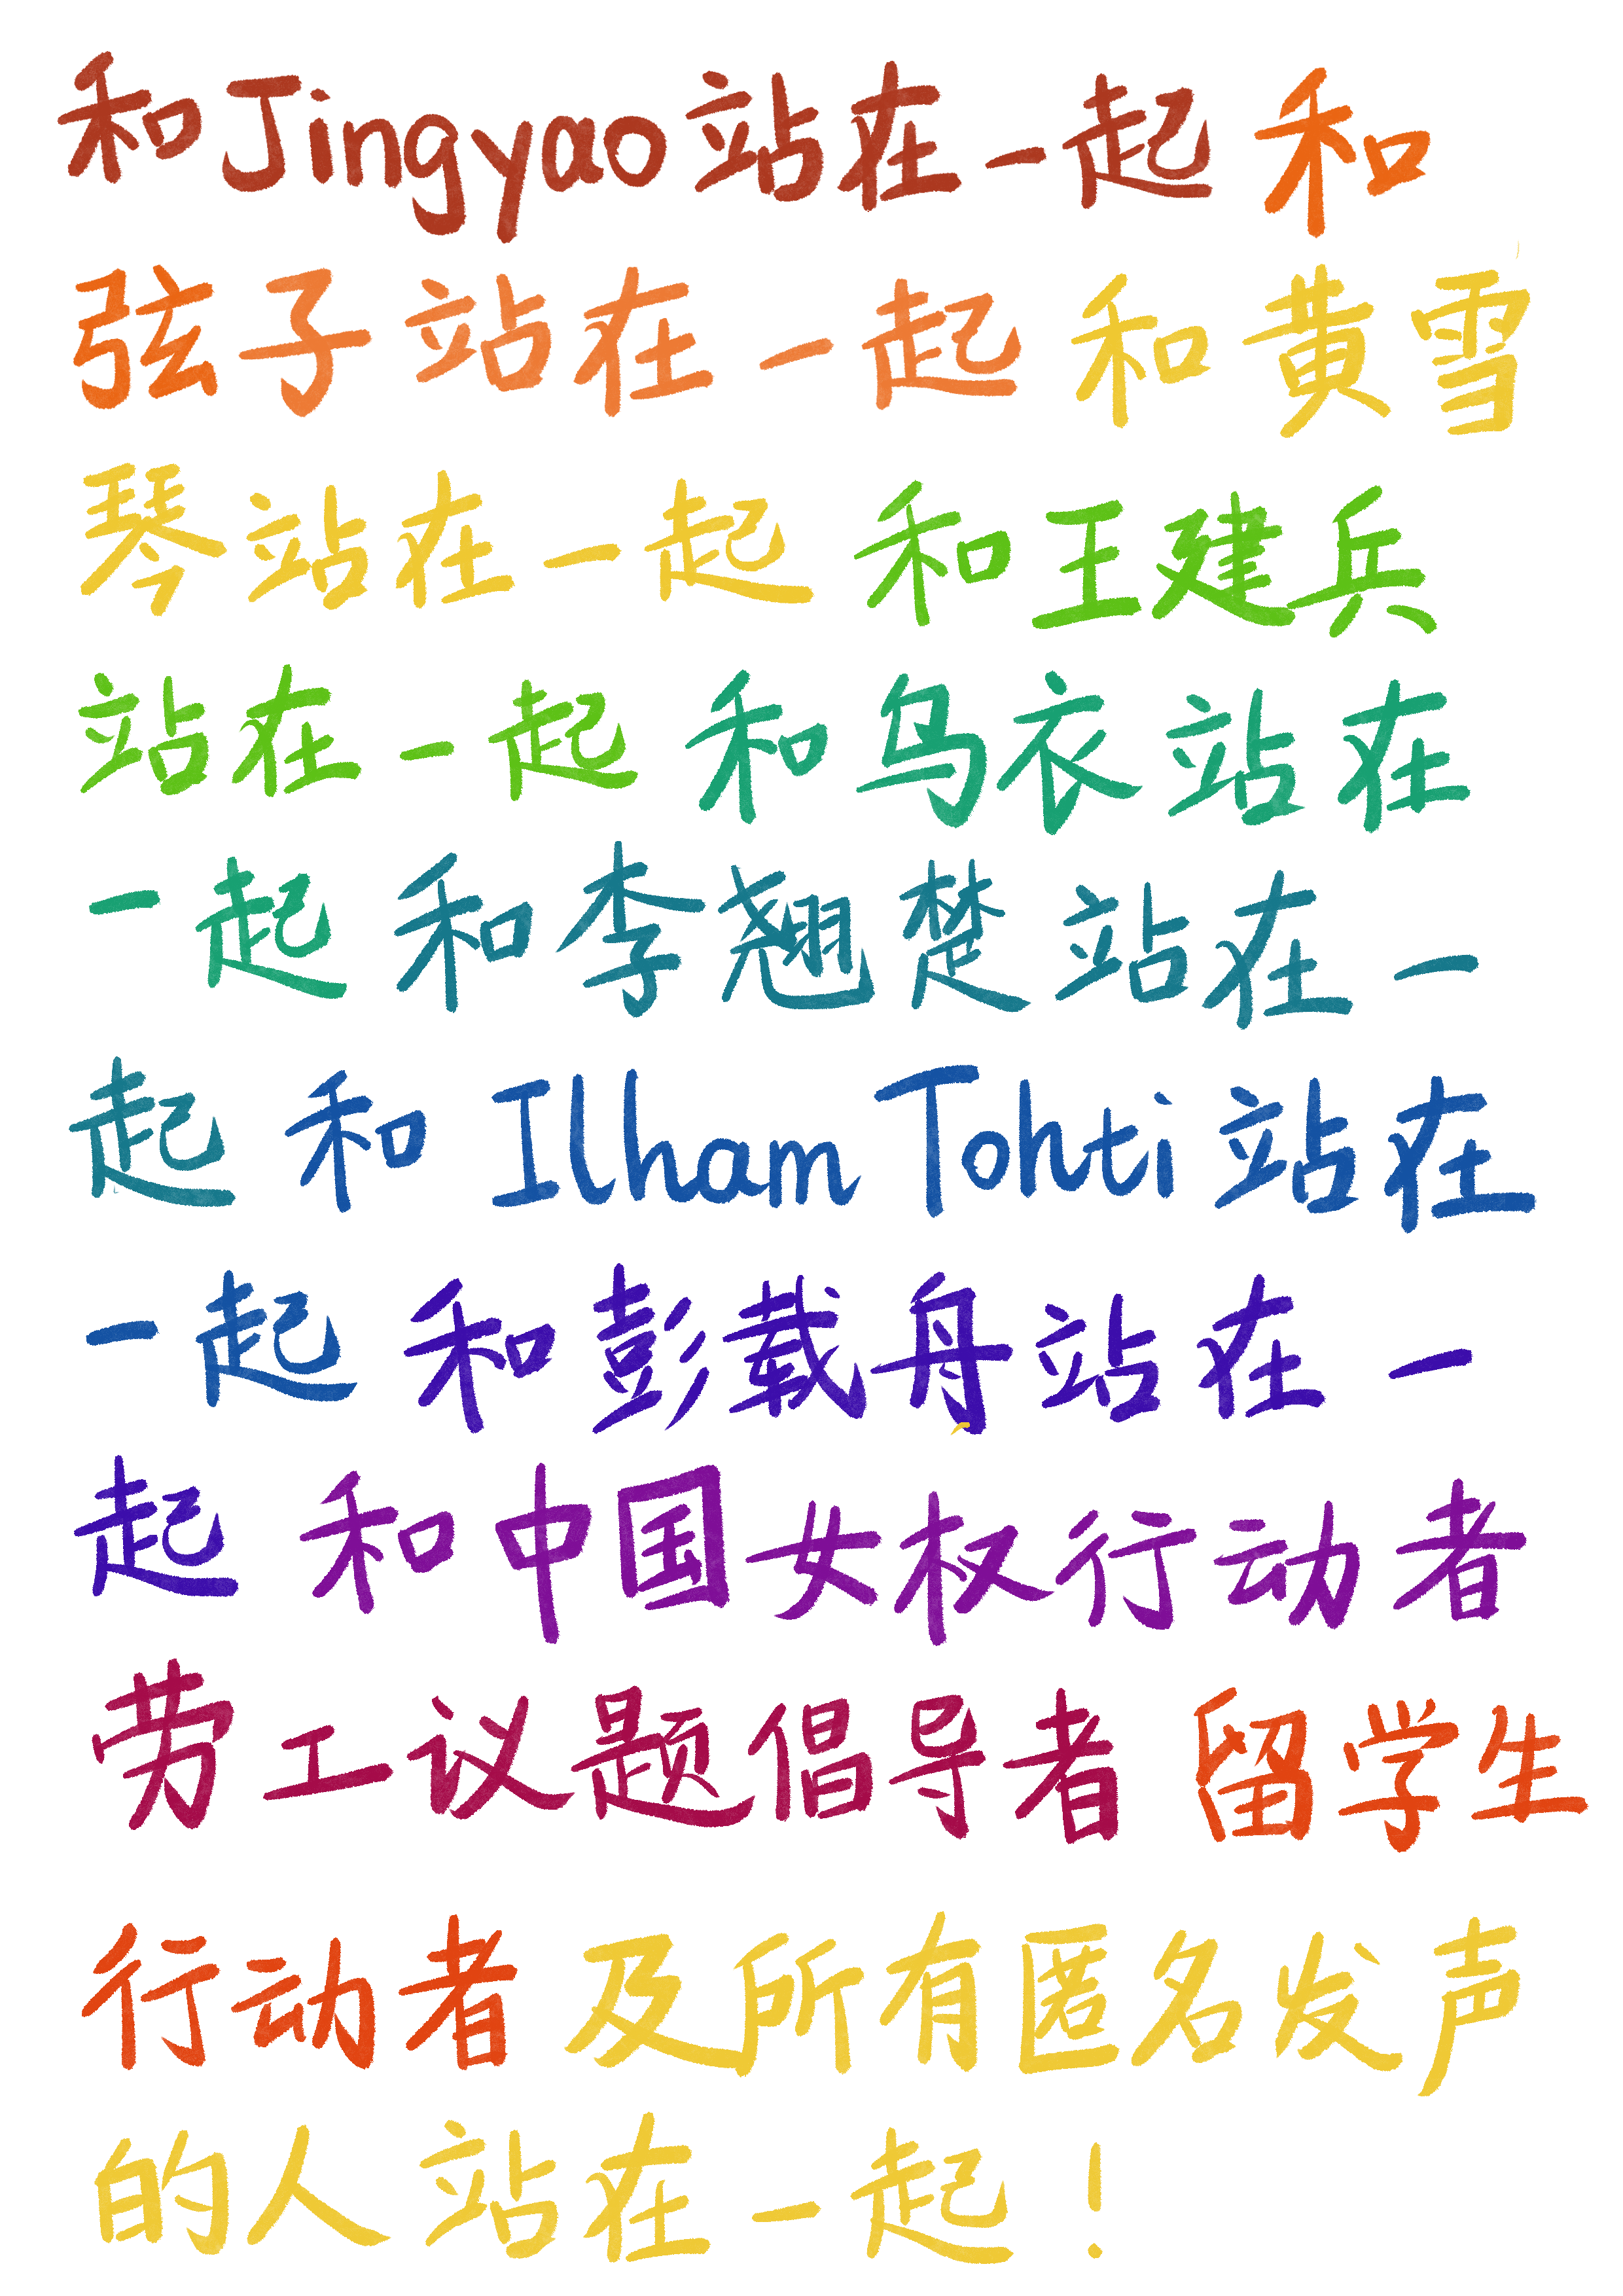 和Jingyao站在一起 和
弦子站在一起 和黄雪
琴站在一起 和王建兵
站在一起 和乌衣站在
一起 和李翘楚站在一
起 和 Ilham Tohti站在
一起 和彭载舟站在一
起 和中国女权行动者
劳工议题倡导者 留学生
行动者 及所有匿名发声
的人 站在一起！